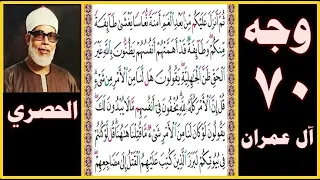 وجه
٧٠
آل عمران
ثُمَّ أَنزَلَ عَلَيْكُم مِّنۢ بَعْدِ ٱلْغَمِّ أَمَنَةً نُّعَاسًا يَغْشَىٰ طَآئِفَةً
مِّنكُمْ وَطَآئِفَةٌ قَدْ أَهَمَّتْهُمْ أَنفُسُهُمْ يَظُنُّونَ بِٱللَّهِ غَيْرَ
ٱلْحَقِّ ظَنَّ ٱلْجَٰهِلِيَّةِ يَقُولُونَ هَل لَّنَا مِنَ ٱلْأَمْرِ مِن شَىْءٍ
قُلْ إِنَّ ٱلْأَمْرَ كُلَّهُۥ لِلَّهِ يُخْفُونَ فِىٓ أَنفُسِهِم مَّا لَا يُبْدُونَ لَكَ
يَقُولُونَ لَوْ كَانَ لَنَا مِنَ ٱلْأَمْرِ شَىْءٌ مَّا قُتِلْنَا هَٰهُنَا قُل لَّوْ كُنتُمْ
فِى بُيُوتِكُمْ لَبَرَزَ ٱلَّذِينَ كُتِبَ عَلَيْهِمُ ٱلْقَتْلُ إِلَىٰ مَضَاجِعِهِمْ
الحصري